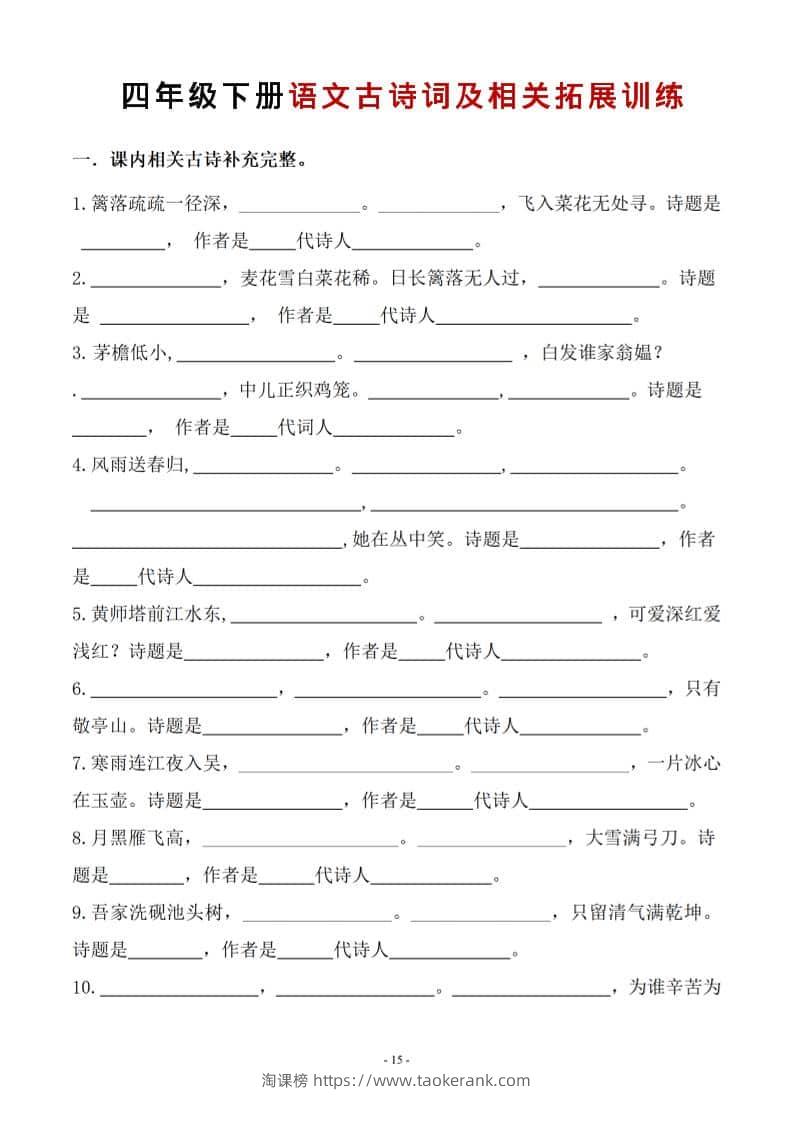 四年级下册语文古诗词及相关拓展训练
一．课内相关古诗补充完整。
1.篱落疏疏一径深，_____________。_____________，飞入菜花无处寻。诗题是
_________， 作者是_____代诗人_____________。
2.______________，麦花雪白菜花稀。日长篱落无人过，_____________。诗题
是 ________________， 作者是_____代诗人_____________________。
3.茅檐低小,_________________。_________________ ，白发谁家翁媪？
._______________，中儿正织鸡笼。______________,_____________。诗题是
________， 作者是_____代词人_____________。
4.风雨送春归,_______________。________________,__________________。
_____________________________,_________________________________。
_____________________________,她在丛中笑。诗题是_______________，作者
是_____代诗人__________________。
5.黄师塔前江水东,____________________。__________________ ，可爱深红爱
浅红？诗题是_______________，作者是_____代诗人_______________。
6.____________________，____________________。_____________________，只有
敬亭山。诗题是_______________，作者是_____代诗人_____________。
7.寒雨连江夜入吴，_______________________。_________________，一片冰心
在玉壶。诗题是_______________，作者是______代诗人_________________。
8.月黑雁飞高，_____________________。________________，大雪满弓刀。诗
题是________，作者是______代诗人_____________。
9.吾家洗砚池头树，________________。_______________，只留清气满乾坤。
诗题是________，作者是______代诗人_____________。
10._________________，_________________。_________________，为谁辛苦为
- 15 -
淘课榜 https://www.taokerank.com